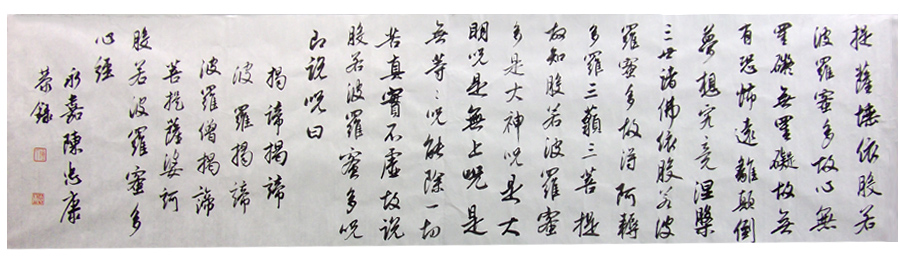 提薩埵依般若
波羅蜜多故心無
罣礙無罣礙故無
有恐怖遠離顛倒
夢想究竟涅槃
三世諸佛依般若波
羅蜜多故得阿耨
多羅三藐三菩提
故知般若波羅蜜
多是大神呪是大
明呪是無上呪是
無等〻呪能除一切
苦真實不虛故說
般若波羅蜜多呪
即說呪曰
揭諦揭諦
波羅揭諦
波羅僧揭諦
菩提薩婆訶
般若波羅蜜多
心經
永嘉陳忠康
恭錄